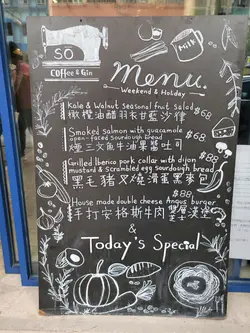 SO
COFFEE & Gin
MILK
Menu.
Weekend & Holiday
Kale & Walnut seasonal fruit salad
$68
橄欖油醋羽衣甘藍沙律
Smoked salmon with guacamole
open-faced sourdough bread
$68
煙三文魚牛油果醬吐司
Grilled Iberico pork collar with dijon
mustard & Scrambled egg sourdough bread
$88
黑毛豬叉燒滑蛋黑麥包
House made double cheese Angus burger
$88
手打安格斯牛肉雙層漢堡
芝士
&
Today's Special